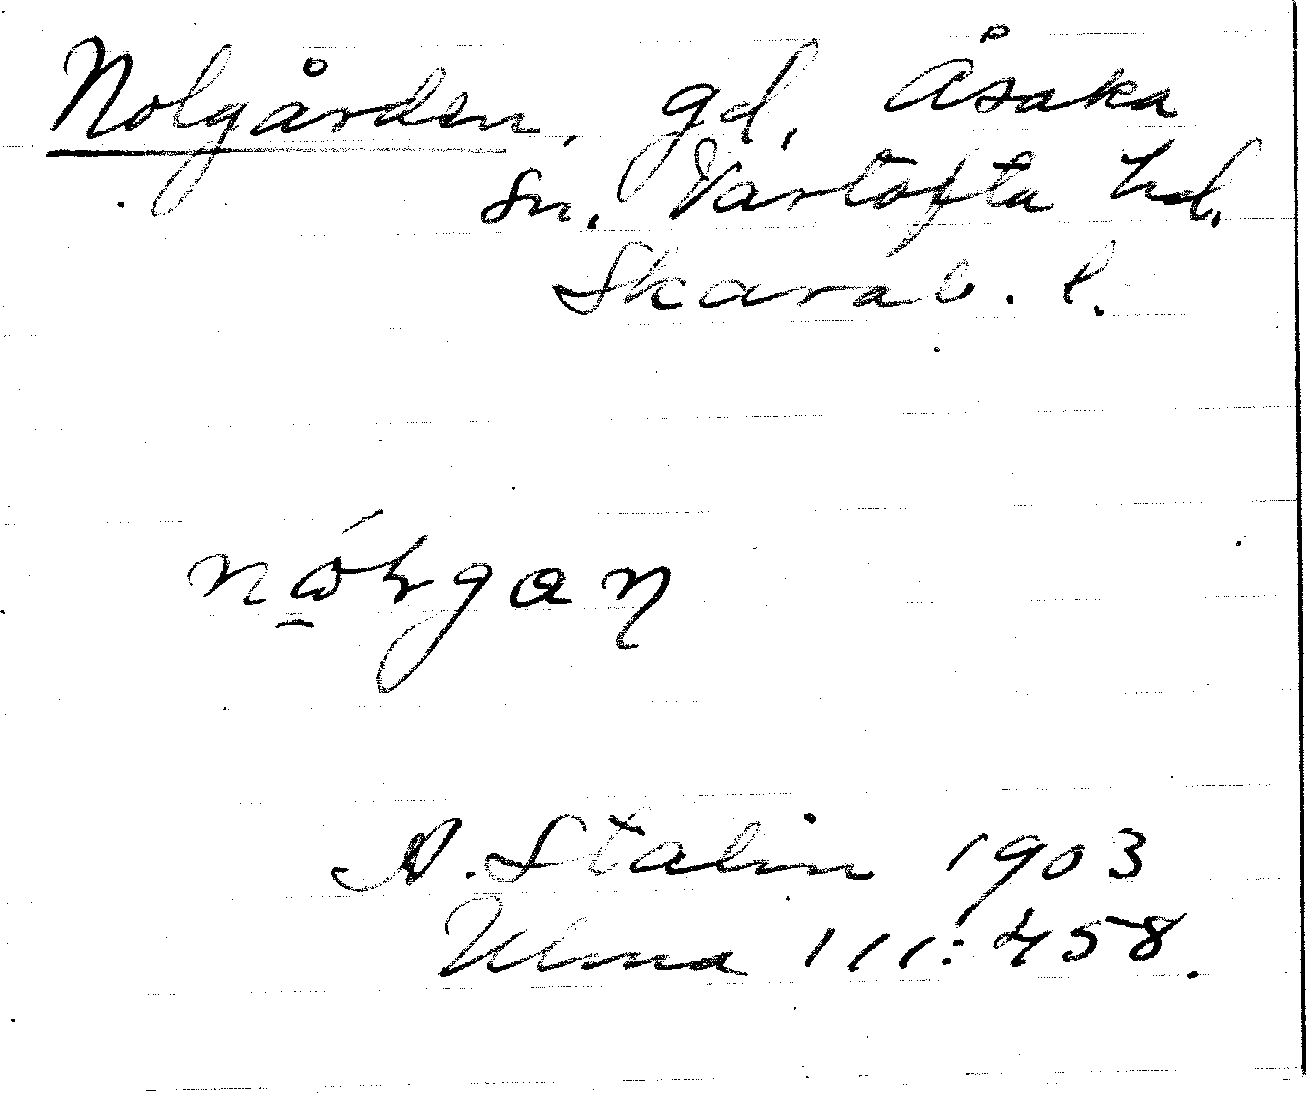 Nolgården, gd, Åsaka
sn. Vartofta hd.
Skarab. l.
A. Stalin 1903
Ulma 111:458.